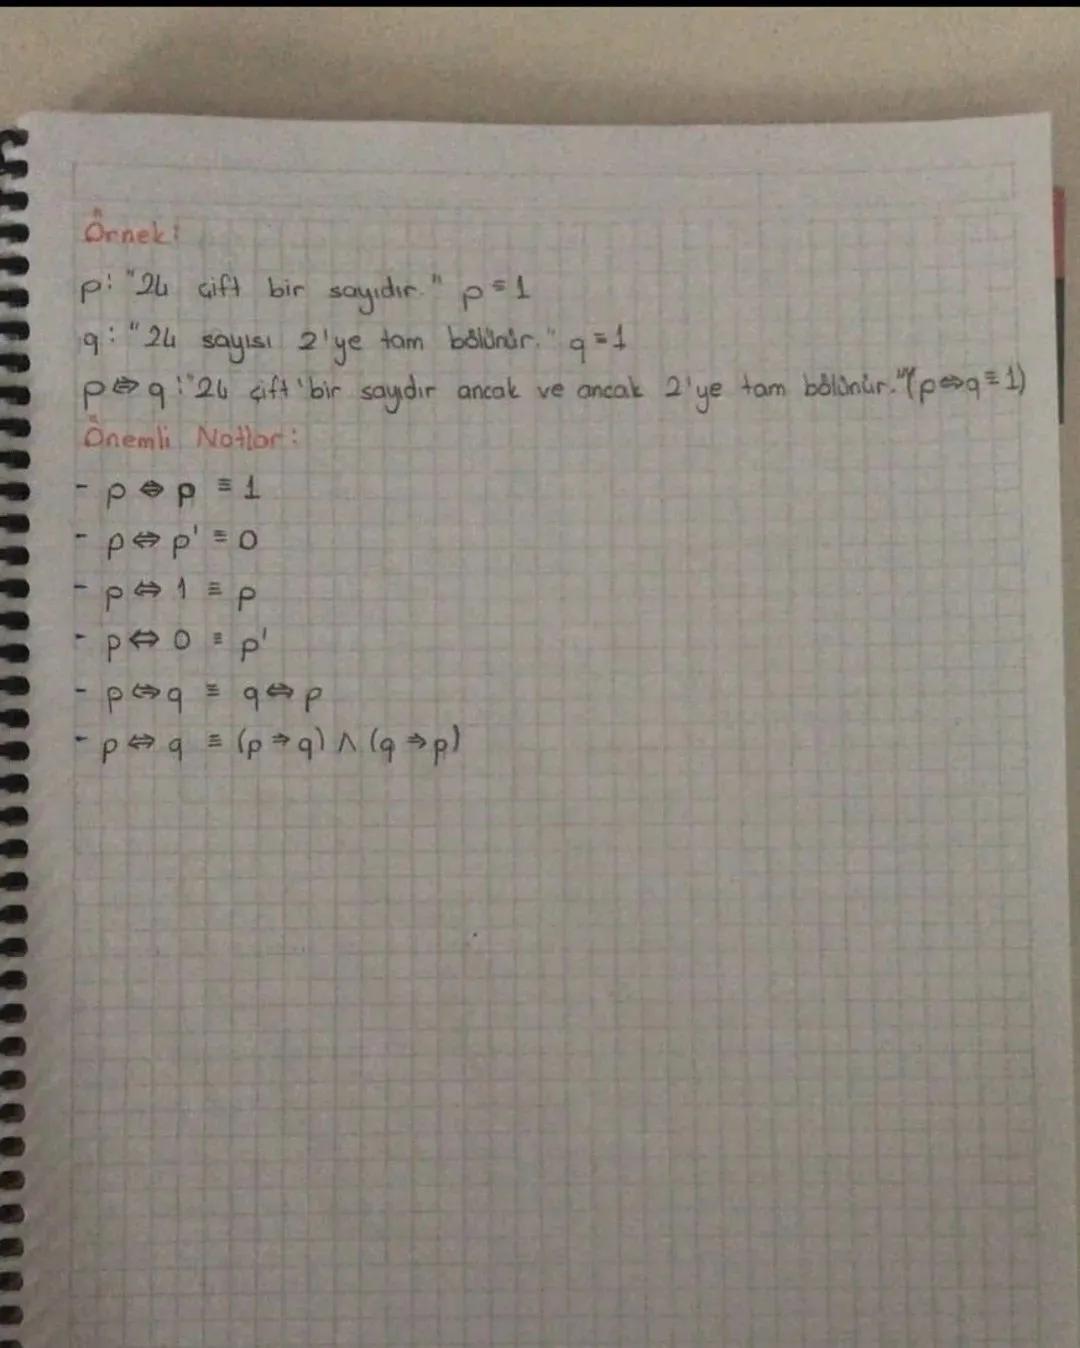 Örnek:
p: "24 çift bir sayıdır." p ≡ 1
q: "24 sayısı 2'ye tam bölünür." q ≡ 1
p ⇔ q : "24 çift bir sayıdır ancak ve ancak 2'ye tam bölünür." (p ⇔ q ≡ 1)
Önemli Notlar:
- p ⇔ p ≡ 1
- p ⇔ p' ≡ 0
- p ⇔ 1 ≡ p
- p ⇔ 0 ≡ p'
- p ⇔ q ≡ q ⇔ p
- p ⇔ q ≡ (p ⇒ q) ∧ (q ⇒ p)